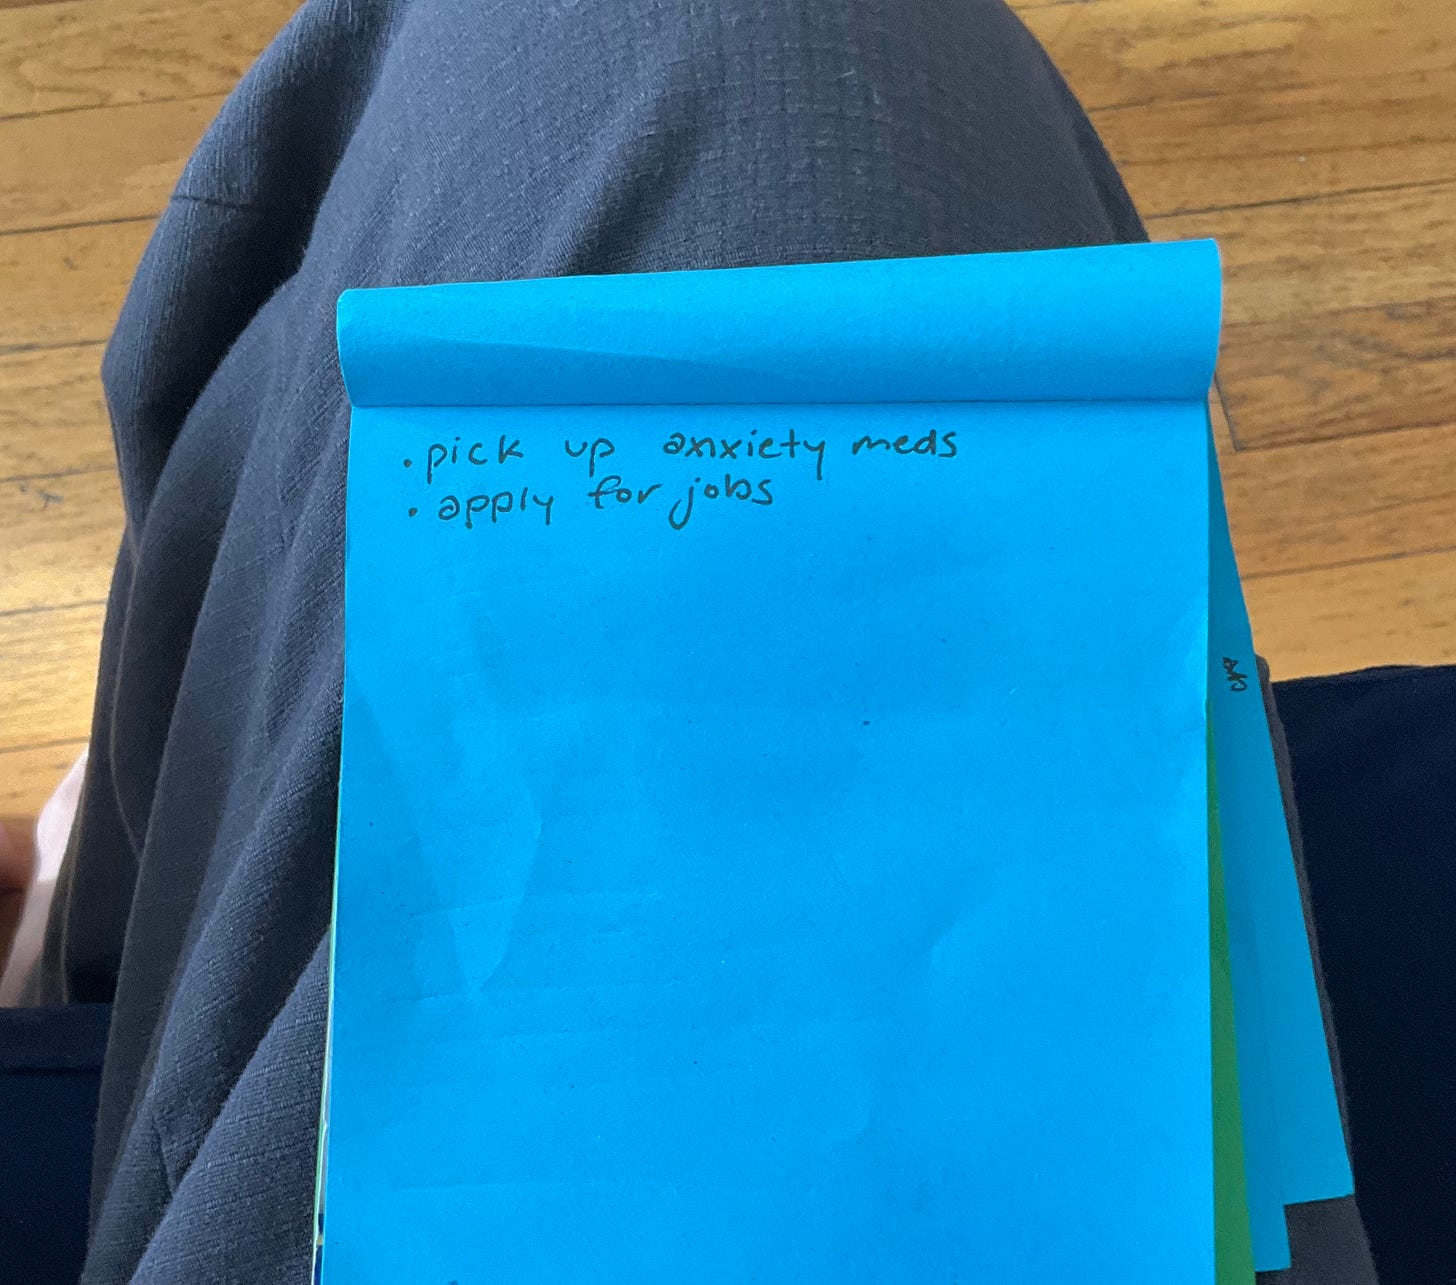 · pick up anxiety meds
· apply for jobs